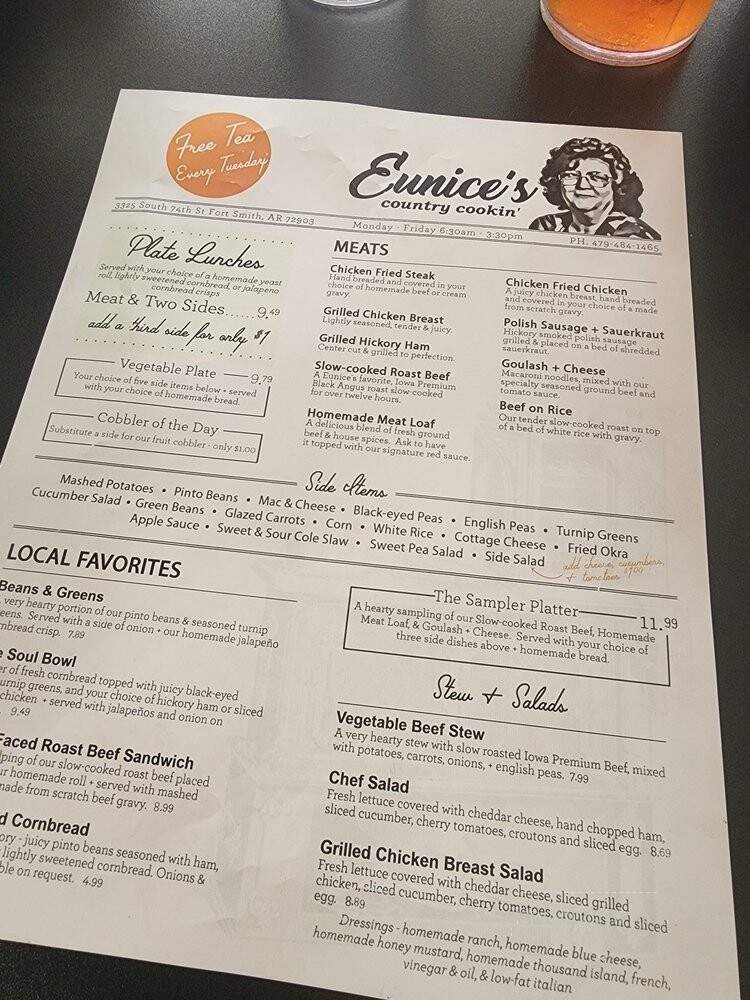 Free Tea
Every Tuesday
Eunice's
country cookin'
3325 South 74th St Fort Smith, AR 72903
Monday - Friday 6:30am - 3:30pm
PH. 479-484-1465
Plate Lunches
Served with your choice of a homemade yeast
roll, lightly sweetened cornbread, or jalapeno
cornbread crisps
Meat & Two Sides...... 9.49
add a third side for only $1
Vegetable Plate 9.79
Your choice of five side items below + served
with your choice of homemade bread.
Cobbler of the Day
Substitute a side for our fruit cobbler - only $1.00
MEATS
Chicken Fried Steak
Hand breaded and covered in your
choice of homemade beef or cream
gravy.
Grilled Chicken Breast
Lightly seasoned, tender & juicy.
Grilled Hickory Ham
Center cut & grilled to perfection.
Slow-cooked Roast Beef
A Eunice's favorite, Iowa Premium
Black Angus roast slow-cooked
for over twelve hours.
Homemade Meat Loaf
A delicious blend of fresh ground
beef & house spices. Ask to have
it topped with our signature red sauce.
Chicken Fried Chicken
A juicy chicken breast, hand breaded
and covered in your choice of a made
from scratch gravy.
Polish Sausage + Sauerkraut
Hickory smoked polish sausage
grilled & placed on a bed of shredded
sauerkraut.
Goulash + Cheese
Macaroni noodles, mixed with our
specialty seasoned ground beef and
tomato sauce.
Beef on Rice
Our tender slow-cooked roast on top
of a bed of white rice with gravy.
Side Items
Mashed Potatoes • Pinto Beans • Mac & Cheese • Black-eyed Peas • English Peas • Turnip Greens
Cucumber Salad • Green Beans • Glazed Carrots • Corn • White Rice • Cottage Cheese • Fried Okra
Apple Sauce • Sweet & Sour Cole Slaw • Sweet Pea Salad • Side Salad
add cheese, cucumbers,
+ tomatoes $1.00
LOCAL FAVORITES
Beans & Greens
very hearty portion of our pinto beans & seasoned turnip
eens. Served with a side of onion + our homemade jalapeño
rnbread crisp. 7.89
e Soul Bowl
er of fresh cornbread topped with juicy black-eyed
urnip greens, and your choice of hickory ham or sliced
chicken + served with jalapeños and onion on
. 9.49
Faced Roast Beef Sandwich
lping of our slow-cooked roast beef placed
ur homemade roll + served with mashed
made from scratch beef gravy. 8.99
d Cornbread
ory - juicy pinto beans seasoned with ham,
lightly sweetened cornbread. Onions &
ble on request. 4.99
The Sampler Platter 11.99
A hearty sampling of our Slow-cooked Roast Beef, Homemade
Meat Loaf, & Goulash + Cheese. Served with your choice of
three side dishes above + homemade bread.
Stew + Salads
Vegetable Beef Stew
A very hearty stew with slow roasted Iowa Premium Beef, mixed
with potatoes, carrots, onions, + english peas. 7.99
Chef Salad
Fresh lettuce covered with cheddar cheese, hand chopped ham,
sliced cucumber, cherry tomatoes, croutons and sliced egg. 8.69
Grilled Chicken Breast Salad
Fresh lettuce covered with cheddar cheese, sliced grilled
chicken, sliced cucumber, cherry tomatoes, croutons and sliced
egg. 8.89
Dressings - homemade ranch, homemade blue cheese,
homemade honey mustard, homemade thousand island, french,
vinegar & oil, & low-fat italian